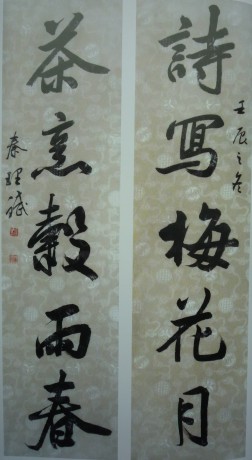 詩寫梅花月
壬辰之冬
茶烹榖雨春
秦理斌